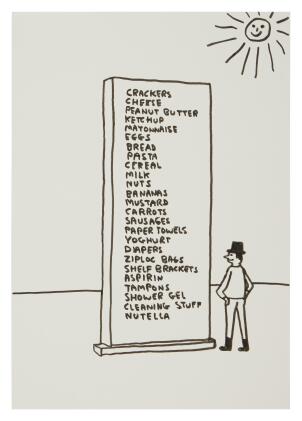 CRACKERS
CHEESE
PEANUT BUTTER
KETCHUP
MAYONNAISE
EGGS
BREAD
PASTA
CEREAL
MILK
NUTS
BANANAS
MUSTARD
CARROTS
SAUSAGES
PAPER TOWELS
YOGHURT
DIAPERS
ZIPLOC BAGS
SHELF BRACKETS
ASPIRIN
TAMPONS
SHOWER GEL
CLEANING STUFF
NUTELLA